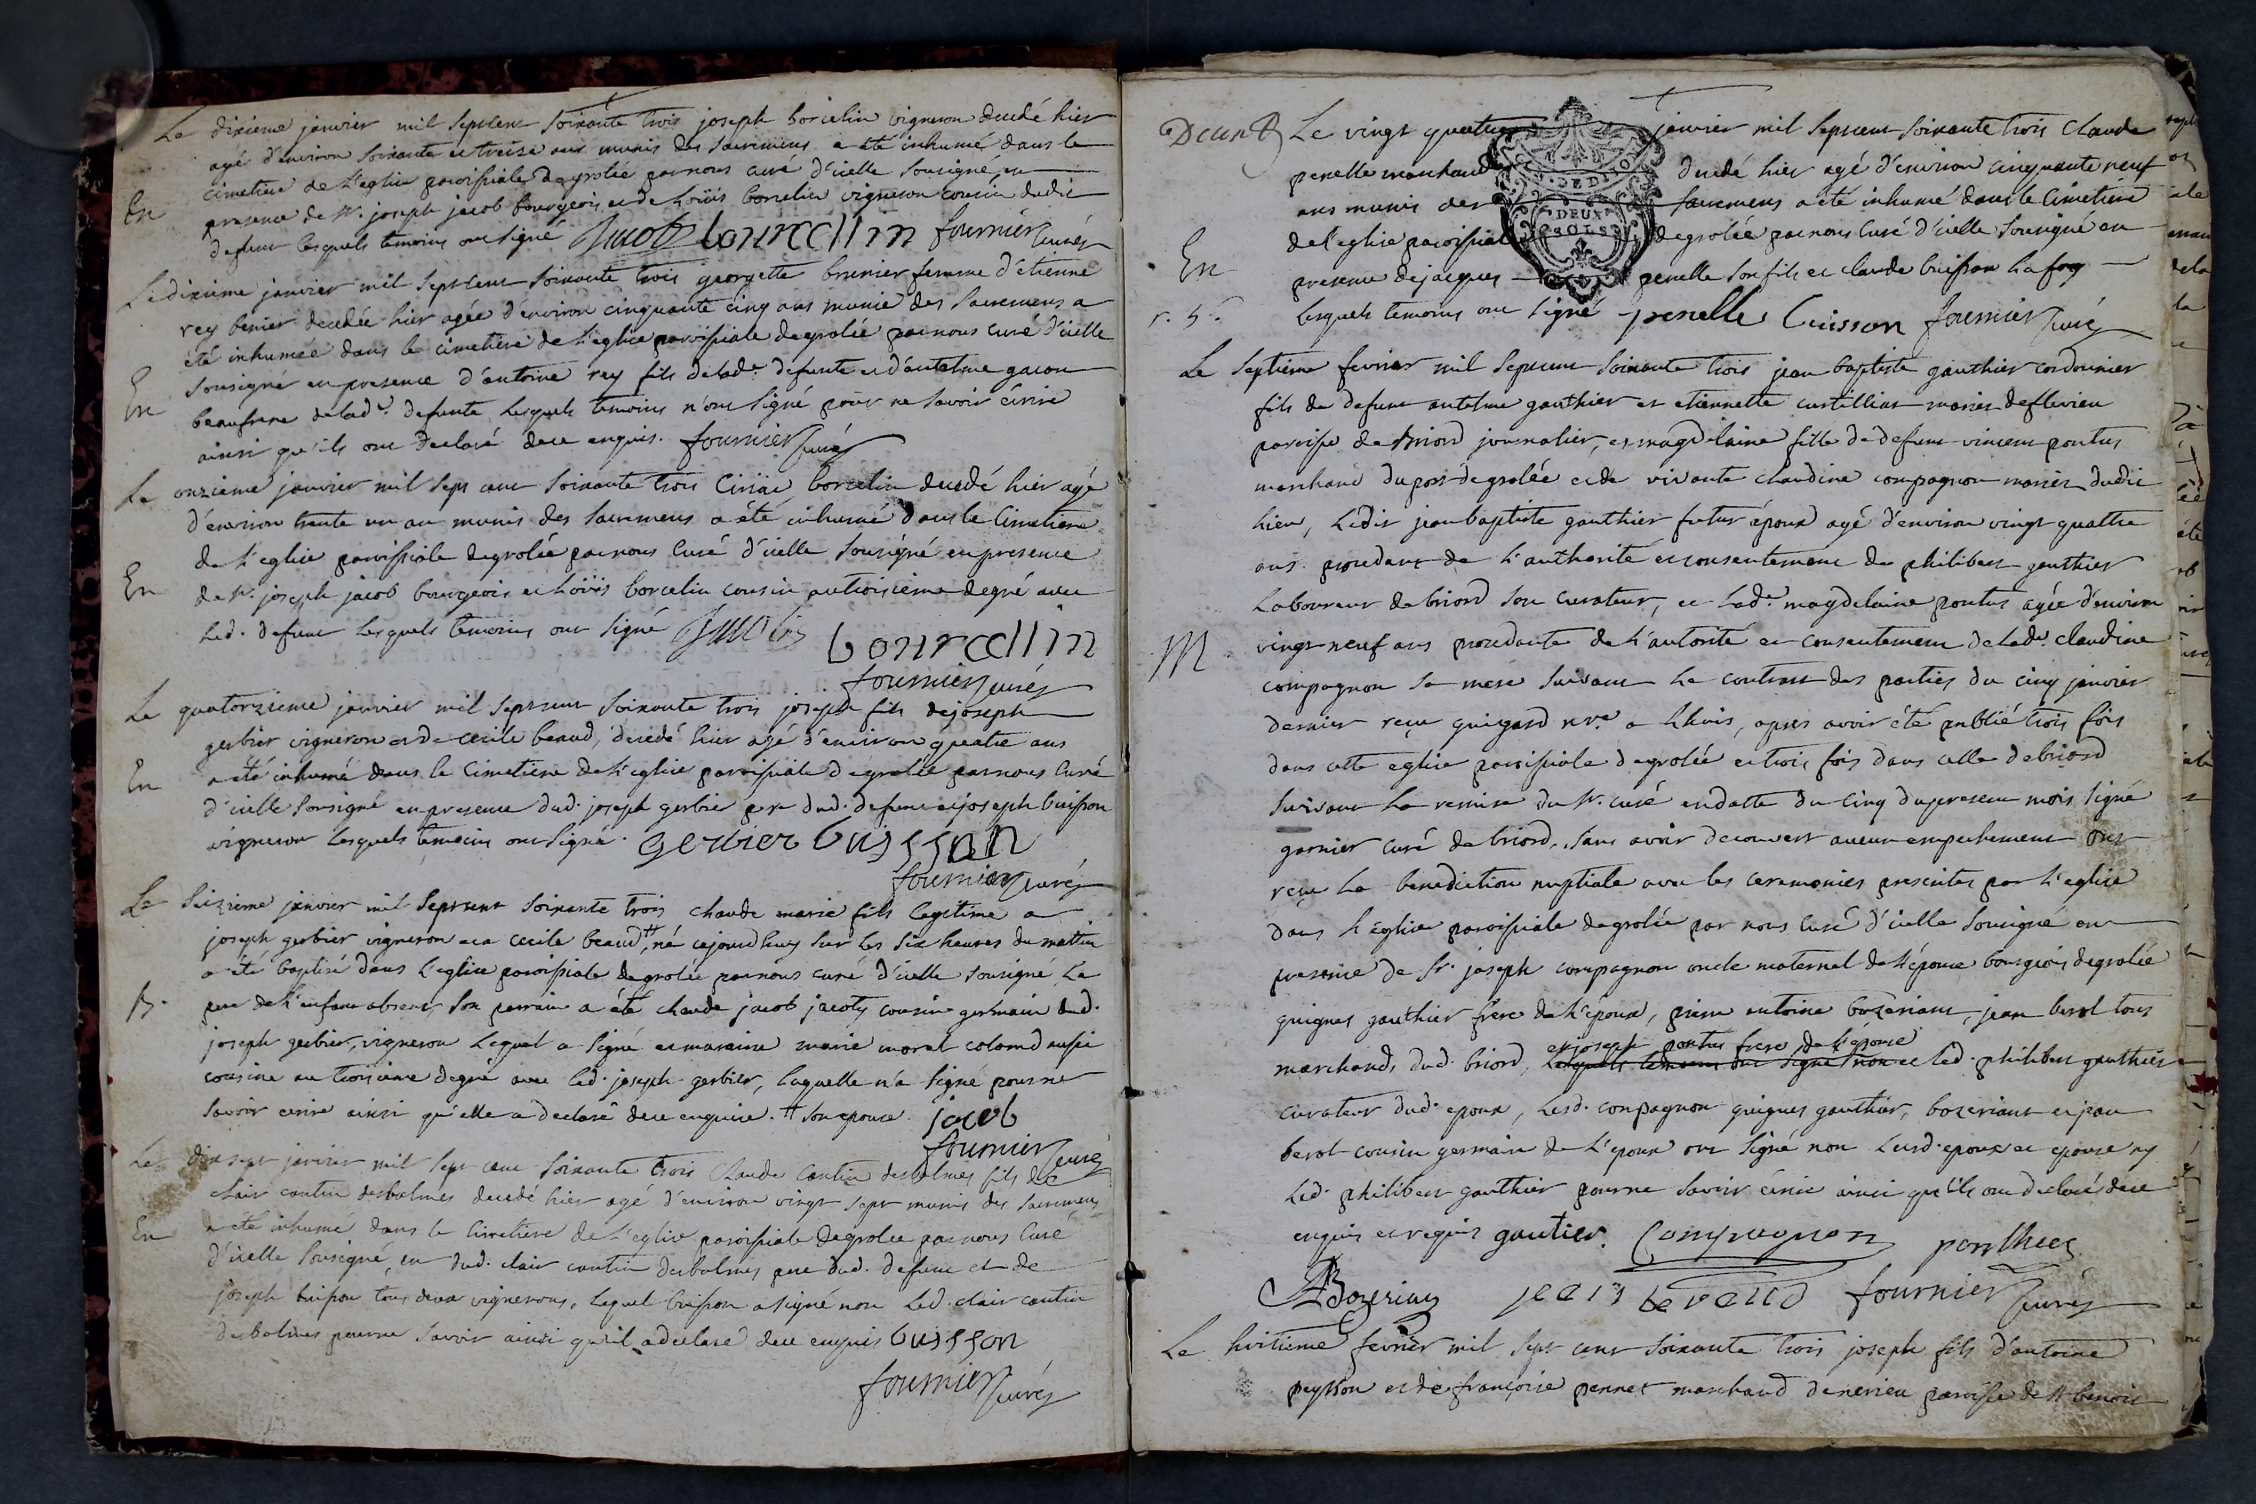 Le dixieme janvier mil septcent soixante trois joseph borcelin vigneron decedé hier
agé d'environ soixante et treize ans munis des sacremens a été inhumé dans le
cimetiere de l'eglise paroissiale de grolée par nous curé d'icelle sousigné en
En
presence de Sr. joseph jacob bourgeois et de Loüis borcelin vigneron cousin dudit
defunt lesquels temoins ont signé Jacob bourcellin fournier curé
Le dixieme janvier mil septcent soixante trois georgette brunier femme d'etienne
rey benier decedée hier agée d'environ cinquante cinq ans munie des sacremens a
été inhumée dans le cimetiere de l'eglise paroissiale de grolée par nous curé d'icelle
sousigné en presence d'antoine rey fils de lade. defunte et d'antelme gacon
En
beaufrere de lade. defunte lesquels temoins n'ont signé pour ne savoir écrire
ainsi qu'ils ont declaré de ce enquis. fournier curé
Le onzieme janvier mil sept cent soixante trois Ciriac borcelin decedé hier agé
d'environ trente un an munis des sacremens a été inhumé dans le Cimetiere
de l'eglise paroissiale de grolée par nous curé d'icelle sousigné en presence
En
de Sr. joseph jacob bourgeois et Loüis borcelin cousin au troisieme degré avec
led. defunt lesquels temoins ont signé Jacob
bourcellin
fournier curé
Le quatorzieme janvier mil septcent soixante trois joseph fils de joseph
gerbier vigneron et de cecile beaud, decedé hier agé d'environ quatre ans
En
a été inhumé dans le Cimetiere de l'eglise paroissiale de grolée par nous curé
d'icelle sousigné en presence dud. joseph gerbier pere dud. defunt et joseph buisson
vigneron lesquels temoins ont signé. gerbier buisson
fournier curé
Le seizieme janvier mil septcent soixante trois claude marie fils legitime a
joseph gerbier vigneron et a cecile beaud, né cejourd'huy sur les six heures du mattin
a été baptisé dans l'eglise paroissiale de grolée par nous curé d'icelle sousigné le
B.
pere de l'enfant absent, son parrain a été claude jacob jacoty cousin germain dud.
joseph gerbier, vigneron lequel a signé et maraine marie morel colomd aussi
cousine au troisieme degré avec led. joseph gerbier, laquelle n'a signé pour ne
savoir ecrire ainsi qu'elle a declaré de ce enquise. son epouse. jacob
fournier curé
Le dix sept janvier mil sept cent soixante trois Claude Contin desbalmes fils de
clair contin desbalmes decedé hier agé d'environ vingt sept munis des sacremens
En
a été inhumé dans le Cimetiere de l'eglise paroissiale de grolée par nous Curé
d'icelle sousigné, en dud. clair contin desbalmes pere dud. defunt et de
joseph buisson tous deux vignerons, lequel buisson a signé non led. clair contin
desbalmes pour ne savoir ainsi qu'il a declaré de ce enquis buisson
fournier curé
Le vingt quatrieme janvier mil septcent soixante trois Claude
penelle marchand decedé hier agé d'environ cinquante neuf
ans munis des sacremens a été inhumé dans le Cimetiere
DE DIJON
DEUX
SOLS
de l'eglise paroissiale de grolée par nous Curé d'icelle sousigné en
En
presence de jacques penelle son fils et claude buisson
lesquels temoins ont signé penelle buisson fournier curé
Le septieme fevrier mil septcent soixante trois jean baptiste gauthier cordonnier
fils de defunt antelme gauthier et etiennette custillias mariés de flevieu
paroisse de Briord journalier, et magdelaine fille de defunt vincent pontus
marchand du port de grolée et de vivante claudine compagnon mariés dudit
lieu, ledit jean baptiste gauthier futur époux agé d'environ vingt quattre
ans procedant de l'authorité et consentement de philibert gauthier
laboureur de briord son curateur, et lade. magdelaine pontus agée d'environ
M.
vingt neuf ans procedante de l'autorité et consentement de lade. claudine
compagnon sa mere suivant le contract des parties du cinq janvier
dernier reçu guigard nre. a Lhuis, apres avoir été publié trois fois
dans cette eglise paroissiale de grolée et trois fois dans celle de briord
suivant la remise du Sr. curé en datte du cinq du present mois signé
garnier curé de briord, sans avoir decouvert aucun empechement ont
reçu la benediction nuptiale avec les ceremonies prescrites par l'eglise
dans l'église paroissiale de grolée par nous curé d'icelle sousigné en
presence de Sr. joseph compagnon oncle maternel de l'épouse bourgeois de grolée
guigues gauthier frere de l'époux, pierre antoine bozerians, jean berol tous
et joseph pontus frere de l'épouse
marchands dud. briord, lesquels temoins ont signé non et led. philibert gauthier
curateur dud. epoux, lesd. compagnon guigues gauthier, bozeriant et jean
berol cousin germain de l'epoux ont signé non lesd. epoux et epouse ny
led. philibert gauthier pour ne savoir écrire ainsi qu'ils ont declarés de ce
enquis et requis gautier. Compagnon ponthus
A Bozerian jean beraud fournier curé
Le huitieme fevrier mil sept cent soixante trois joseph fils d'antoine
peysson et de françoise pennet marchand de nerieu paroisse de St benoit